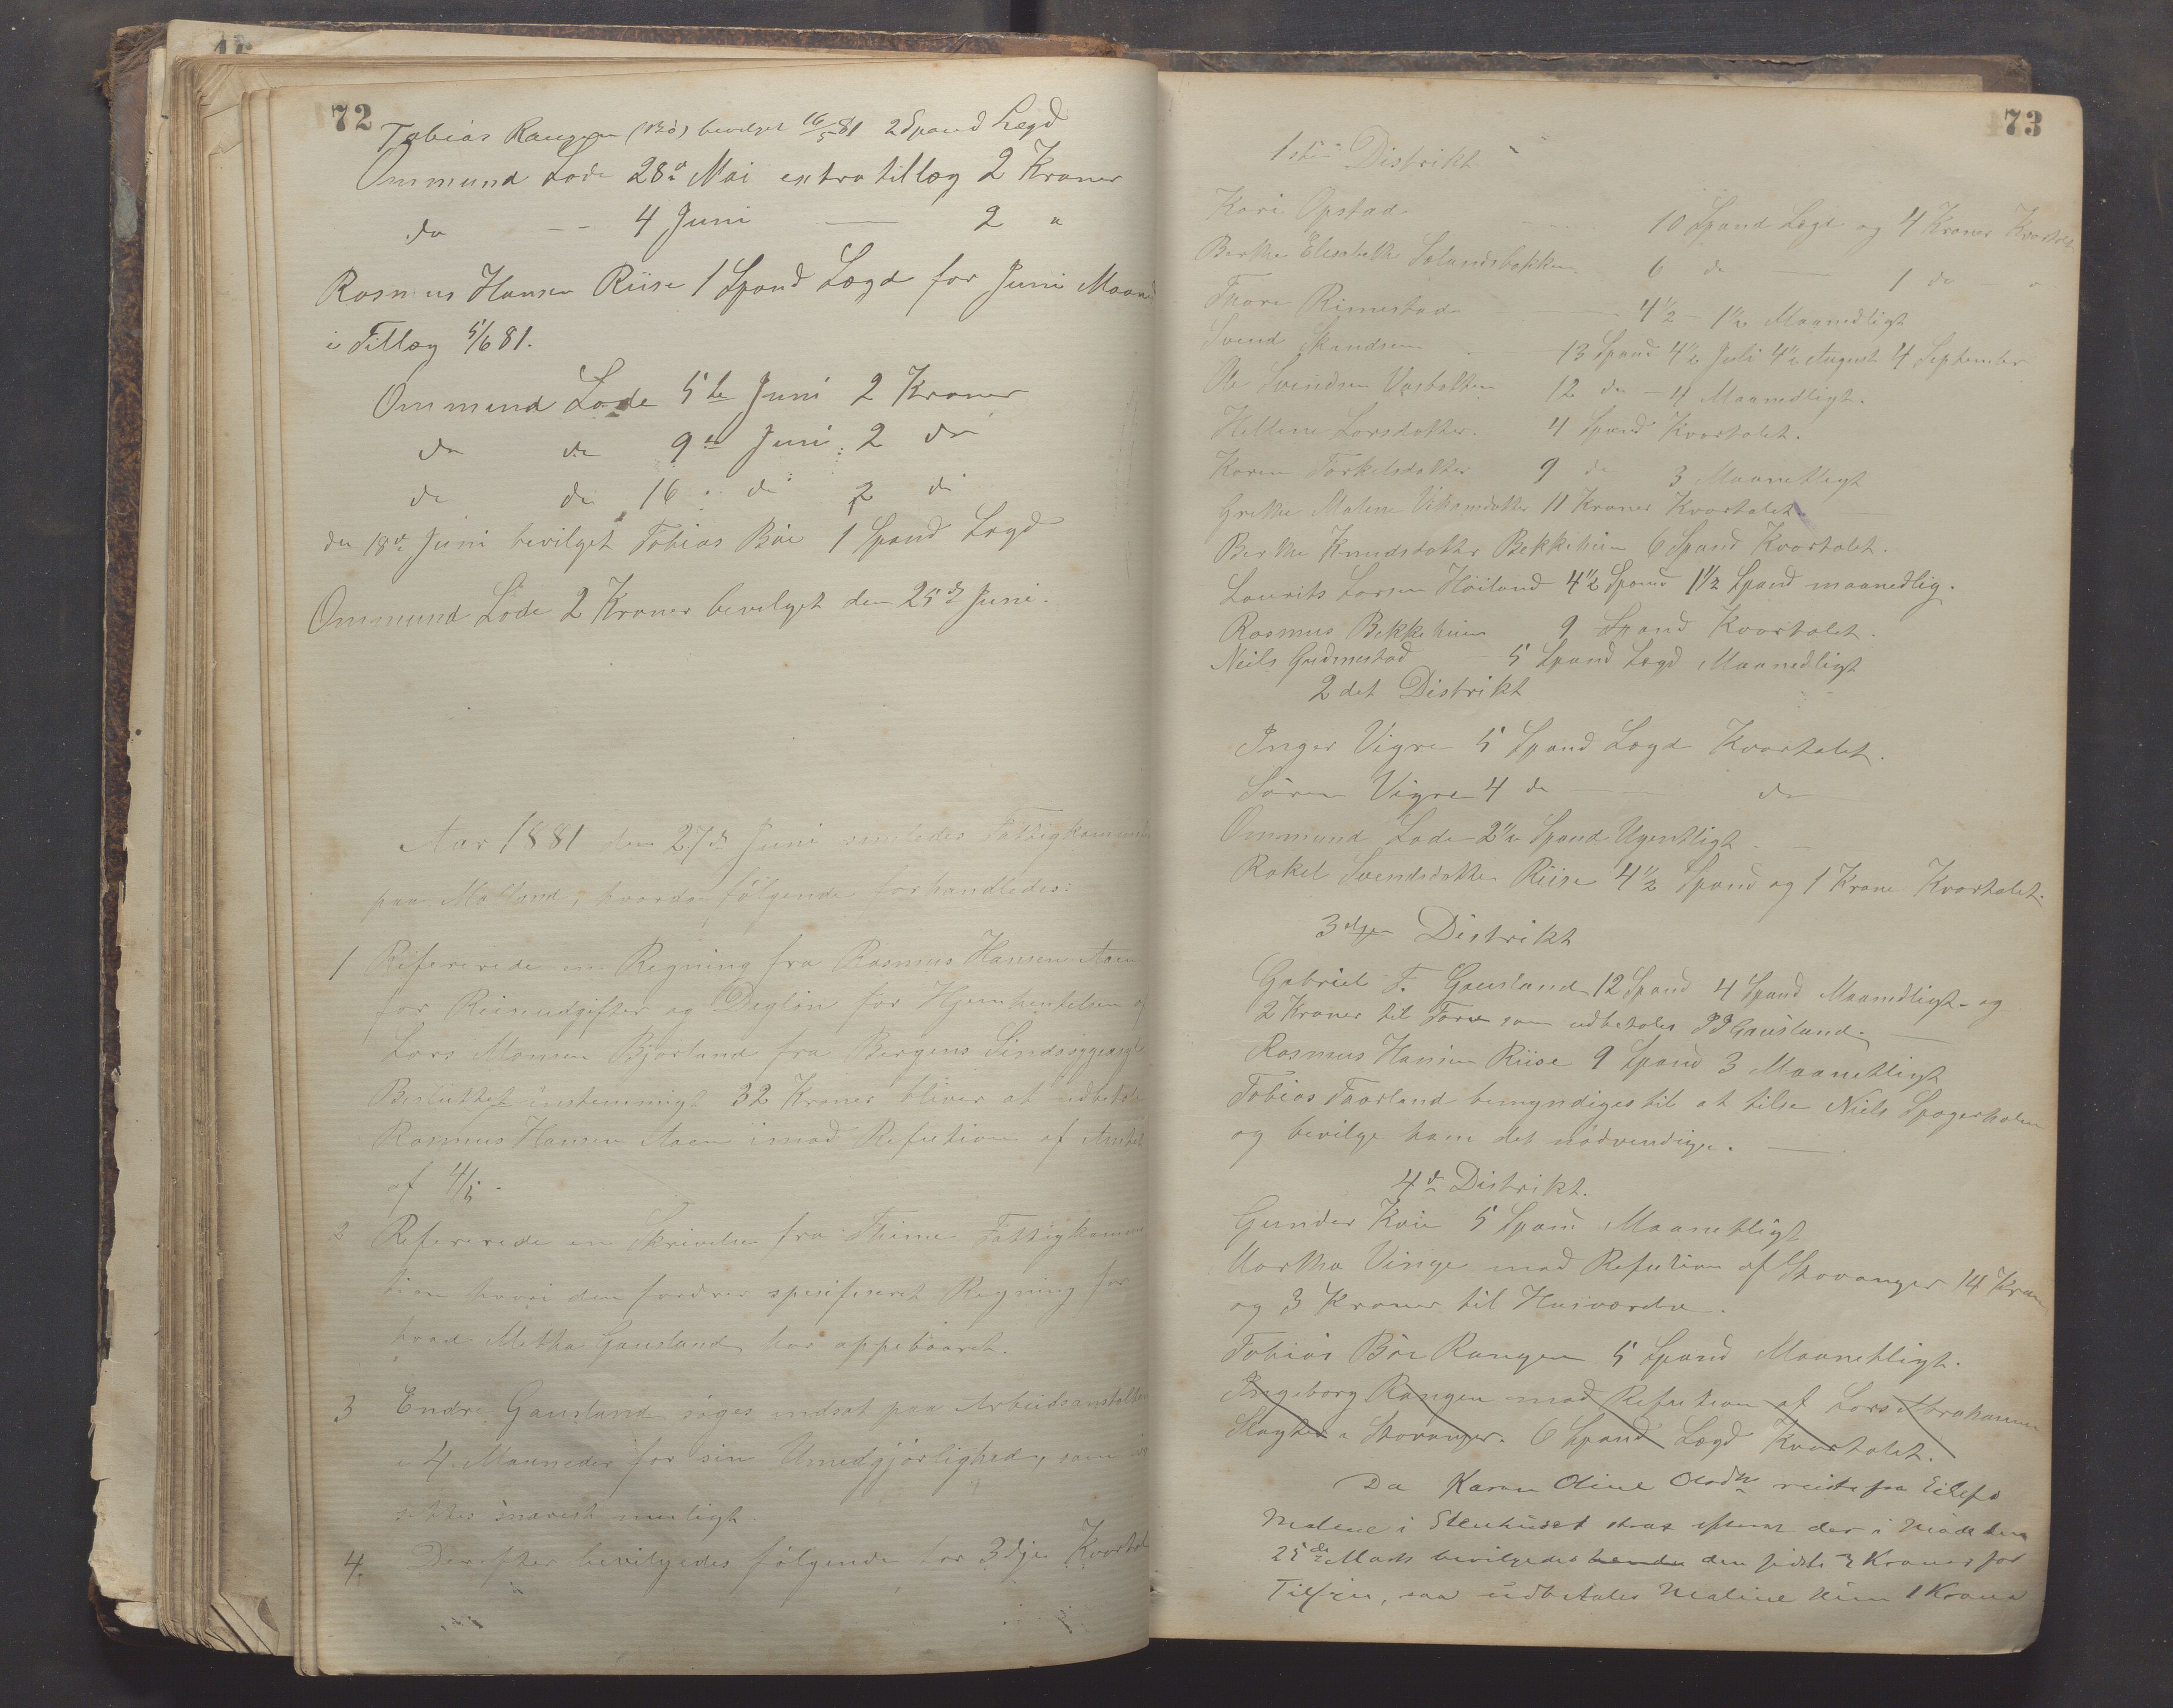 72
Tobias Rangen (Bö) bevilget 16/5 81 2 Spand Legd
Ommund Lode 28de Mai extra tillæg 2 Kroner
do — 4 Juni — 2 "
Rasmus Hansen Riise 1 Spand Lægd for Juni Maaned
i Tillæg 5/6 81.
Ommund Lode 5te Juni 2 Kroner
do do 9de Juni 2 do
do do 16 " do 2 do
den 18de Juni bevilget Tobias Böe 1 Spand Lægd
Ommund Lode 2 Kroner bevilget den 25de Juni.
Aar 1881 den 27de Juni samledes Fattigkommis
paa Motland, hvorda fölgende forhandledes:
1 Refererede en Regning fra Rasmus Hansen Aaen
for Reiseudgifter og Daglön for Hjemhentelsen af
Lars Monsen Bjorland fra Bergens Sindssygeasyl
Besluttet enstemmigt 32 Kroner bliver at udbetale
Rasmus Hansen Aaen imod Refution af Amtet
af 4/5.
2 Refererede en Skrivelse fra Thime Fattigkommis
tion hvori den fordrer spesifiseret Regning for
hvad Metha Gausland har oppebaaret.
3 Endre Gausland söges indsat paa Arbeidsanstalten
i 4 Maaneder for sin Umedgjörlighed, som
sættes snarest muligt.
4. Derefter bevilgedes fölgende for 3dje Kvartal
73
1ste Distrikt
Kari Opstad 10 Spand Lægd og 4 Kroner Kvartalet
Berthe Elisabeth Salandsbakken 6 do — 1 do "
Thore Rimestad — 4½ — 1½ Maanedligt
Svend Skandsen — 13 Spand 4½ Juli 4½ August 4 September
Ole Svendsen Vasbakken 12 do — 4 Maanedligt.
Hellene Larsdatter. 4 Spand Kvartalet.
Karen Torkelsdatter 9 do 3 Maanetligt
Grethe Malene Viksmdatter 11 Kroner Kvartalet
Berthe Knudsdatter Bekkehien 6 Spand Kvartalet.
Laurits Larsen Höiland 4½ Spand 1½ Spand maanedlig.
Rasmus Bekkehien 9 Spand Kvartalet.
Neils Gudmestad 5 Spand Lægd Maanedligt
2det Distrikt
Inger Vigre 5 Spand Lægd Kvartalet.
Sören Vigre 4 do — do
Ommund Lode 2½ Spand Ugentligt.
Rakel Svendsdatter Riise 4½ Spand og 1 Krone Kvartalet.
3dje Distrikt
Gabriel T. Gausland 12 Spand 4 Spand Maandligt og
2 Kroner til Torv som udbetales P J Gausland.
Rasmus Hansen Riise 9 Spand 3 Maanetligt
Tobias Taarland bemyndiges til at tilse Niels Spagerholen
og bevilge ham det nödvendige.
4de Distrikt.
Gunder Kvie 5 Spand Maanetligt
Martha Vinge mod Refution af Stavanger 14 Kroner
og 3 Kroner til Husværelse.
Tobias Böe Rangen 5 Spand Maanetligt.
Ingeborg Rangen mod Refution af Lars Abrahamsen
Slagter i Stavanger. 6 Spand Lægd Kvartalet.
Da Karen Oline Olsdtr reiste fra Eilefs
Malene i Stenhuset strax efterat der i Möde den
25de Marts bevilgedes hende den sidste 3 Kroner for
Tilsyn, saa udbetales Malene kun 1 Krone